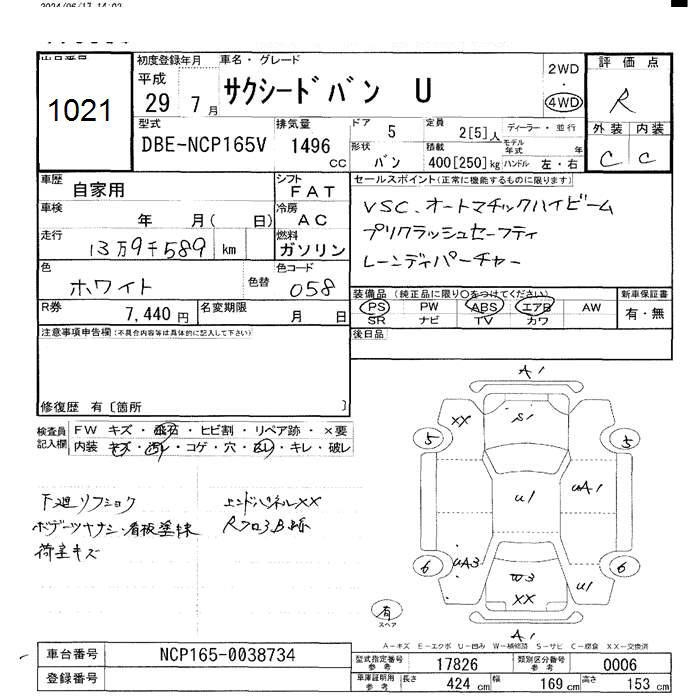 2024/06/17 14:02
出品番号
1021
初度登録年月
平成
29 7月
車名・グレード
サクシードバン U
2WD
・
4WD
評価点
R
型式
DBE-NCP165V
排気量
1496
cc
ドア
5
定員
2[5]人
ディーラー・並行
モデル
年式
年
形状
バン
積載
400[250]kg
ハンドル 左・右
外装 内装
C C
車歴
自家用
シフト
FAT
車検
年 月( 日)
冷房
AC
走行
13万9千589 km
燃料
ガソリン
セールスポイント(正常に機能するものに限ります)
VSC、オートマチックハイビーム
プリクラッシュセーフティ
レーンディパーチャー
色
ホワイト
色替
色コード
058
R券
7,440円
名変期限
月 日
装備品 (純正品に限り○をつけてください)
PS PW ABS エアB AW
SR ナビ TV カワ
新車保証書
有・無
注意事項申告欄(不具合内容等は具体的に記入して下さい)
後日品
修復歴 有〔箇所 〕
検査員
記入欄
FW キズ・飛石・ヒビ割・リペア跡・×要
内装 キズ・汚れ・コゲ・穴・スレ・キレ・破レ
下廻リフショク
ボデーツヤナシ・看板塗装
荷室キズ
エンドパネルXX
A1
XX
S1
5
5
U1
UA1
6
UA3
W3
XX
U1
6
有
スペア
A1
A-キズ E-エクボ U-凹み W-補修跡 S-サビ C-腐食 XX-交換済
車台番号
NCP165-0038734
登録番号
型式指定番号
参考
17826
類別区分番号
参考
0006
車庫証明用
参考
長さ 424 cm 幅 169 cm 高さ 153 cm